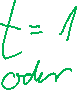 t = 1
oder